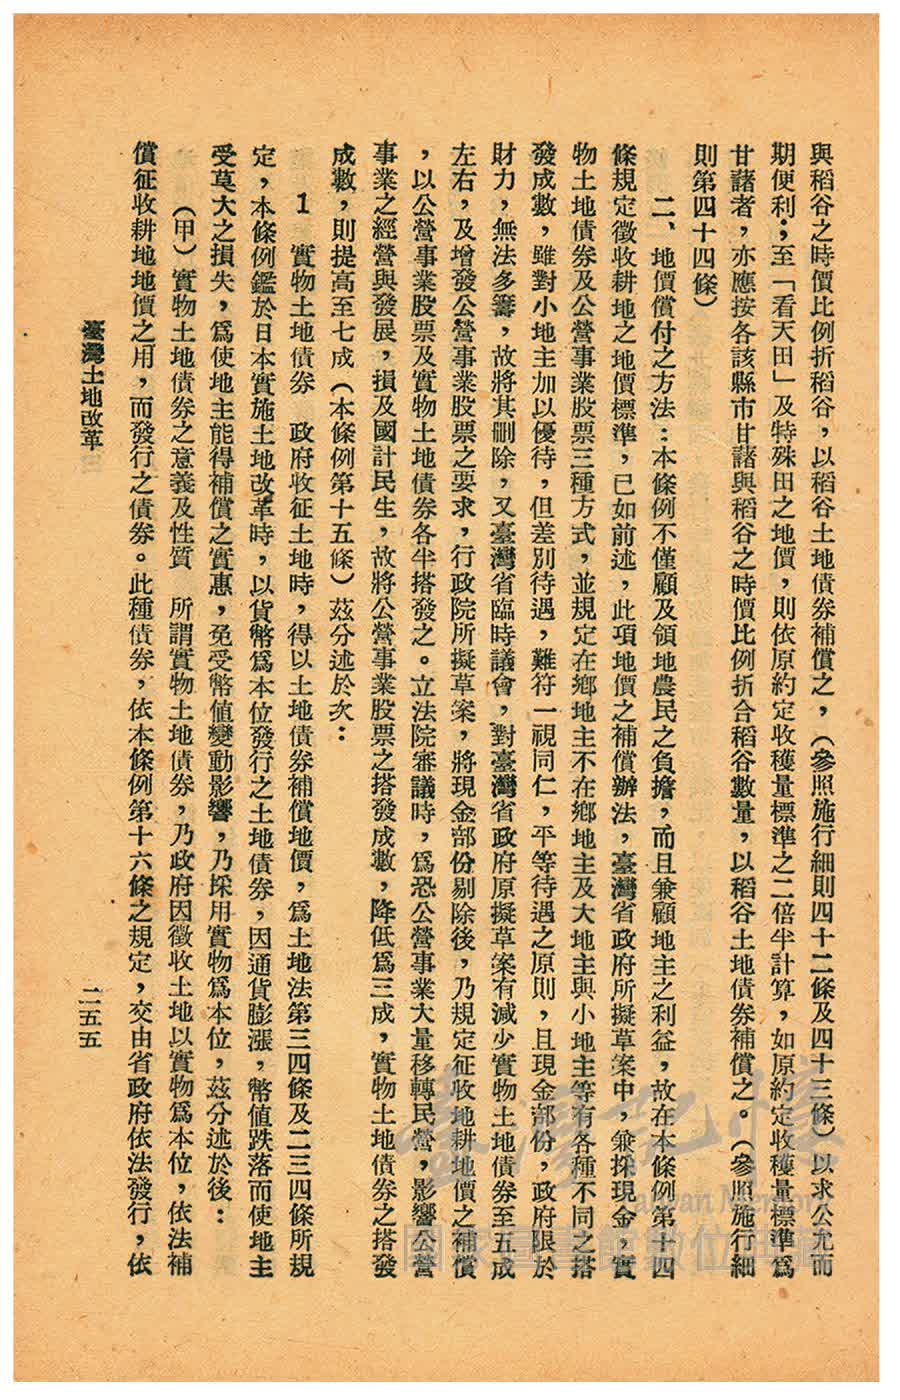 與稻谷之時價比例折稻谷，以稻谷土地債券補償之，（參照施行細則四十二條及四十三條）以求公允而
期便利；至「看天田」及特殊田之地價，則依原約定收穫量標準之二倍半計算，如原約定收穫量標準爲
甘藷者，亦應按各該縣市甘藷與稻谷之時價比例折合稻谷數量，以稻谷土地債券補償之。（參照施行細
則第四十四條）
二、地價償付之方法：本條例不僅顧及領地農民之負擔，而且兼顧地主之利益，故在本條例第十四
條規定徵收耕地之地價標準，已如前述，此項地價之補償辦法，臺灣省政府所擬草案中，兼採現金，實
物土地債券及公營事業股票三種方式，並規定在鄉地主不在鄉地主及大地主與小地主等有各種不同之搭
發成數，雖對小地主加以優待，但差別待遇，難符一視同仁，平等待遇之原則，且現金部份，政府限於
財力，無法多籌，故將其刪除，又臺灣省臨時議會，對臺灣省政府原擬草案有減少實物土地債券至五成
左右，及增發公營事業股票之要求，行政院所擬草案，將現金部份剔除後，乃規定征收地耕地價之補償
，以公營事業股票及實物土地債券各半搭發之。立法院審議時，爲恐公營事業大量移轉民營，影響公營
事業之經營與發展，損及國計民生，故將公營事業股票之搭發成數，降低爲三成，實物土地債券之搭發
成數，則提高至七成（本條例第十五條）茲分述於次：
1　實物土地債券　政府收征土地時，得以土地債券補償地價，爲土地法第三四條及二三四條所規
定，本條例鑑於日本實施土地改革時，以貨幣爲本位發行之土地債券，因通貨膨漲，幣值跌落而使地主
受莫大之損失，爲使地主能得補償之實惠，免受幣値變動影響，乃採用實物爲本位，茲分述於後：
（甲）實物土地債券之意義及性質　所謂實物土地債券，乃政府因徵收土地以實物爲本位，依法補
償征收耕地地價之用，而發行之債券。此種債券，依本條例第十六條之規定，交由省政府依法發行，依
臺灣土地改革
二五五
臺灣記憶
Taiwan Memory
國家圖書館數位典藏